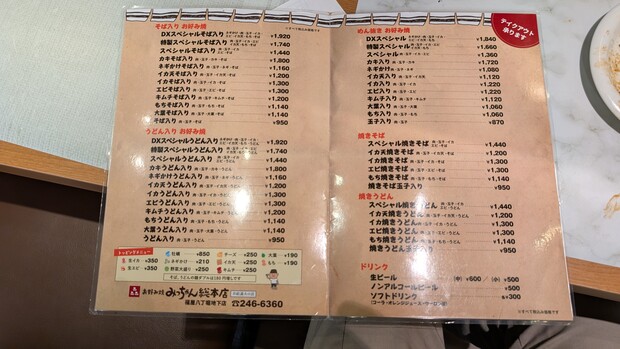 そば入り お好み焼
※すべて税込み価格です
DXスペシャルそば入り ¥1,920
特製スペシャルそば入り ¥1,740
スペシャルそば入り ¥1,440
カキそば入り 肉・玉子・カキ・そば ¥1,800
ネギかけそば入り ¥1,160
イカ天そば入り ¥1,200
イカそば入り ¥1,300
エビそば入り ¥1,300
キムチそば入り ¥1,200
もちそば入り ¥1,140
大葉そば入り ¥1,140
そば入り 肉・玉子・そば ¥950
うどん入り お好み焼
DXスペシャルうどん入り ¥1,920
特製スペシャルうどん入り ¥1,740
スペシャルうどん入り ¥1,440
カキうどん入り ¥1,800
ネギかけうどん入り ¥1,160
イカ天うどん入り ¥1,200
イカうどん入り ¥1,300
エビうどん入り ¥1,300
キムチうどん入り ¥1,200
もちうどん入り ¥1,140
大葉うどん入り ¥1,140
うどん入り 肉・玉子・うどん ¥950
トッピングメニュー
生イカ ¥350
生エビ ¥350
牡蠣 ¥850
ネギかけ ¥210
野菜大盛り ¥250
チーズ ¥250
イカ天 ¥250
キムチ ¥250
大葉 ¥190
もち ¥190
お好み焼 みっちゃん総本店
福屋八丁堀地下店 ☎246-6360
テイクアウト
承ります
めん抜き お好み焼
DXスペシャル ¥1,840
特製スペシャル ¥1,660
スペシャル ¥1,360
カキ入り ¥1,720
ネギかけ ¥1,080
イカ天入り ¥1,120
イカ入り ¥1,220
エビ入り ¥1,220
キムチ入り ¥1,120
大葉入り ¥1,060
もち入り ¥1,060
玉子入り 肉・玉子 ¥870
焼きそば
スペシャル焼きそば ¥1,440
イカ天焼きそば ¥1,200
イカ焼きそば ¥1,300
エビ焼きそば ¥1,300
もち焼きそば ¥1,140
焼きそば玉子入り ¥950
焼きうどん
スペシャル焼きうどん ¥1,440
イカ天焼きうどん ¥1,200
イカ焼きうどん ¥1,300
エビ焼きうどん ¥1,300
もち焼きうどん ¥1,140
焼きうどん玉子入り ¥950
ドリンク
生ビール (中) ¥600 / (小) ¥500
ノンアルコールビール ¥500
ソフトドリンク 各¥300
(コーラ・オレンジジュース・ウーロン茶)
※すべて税込み価格です